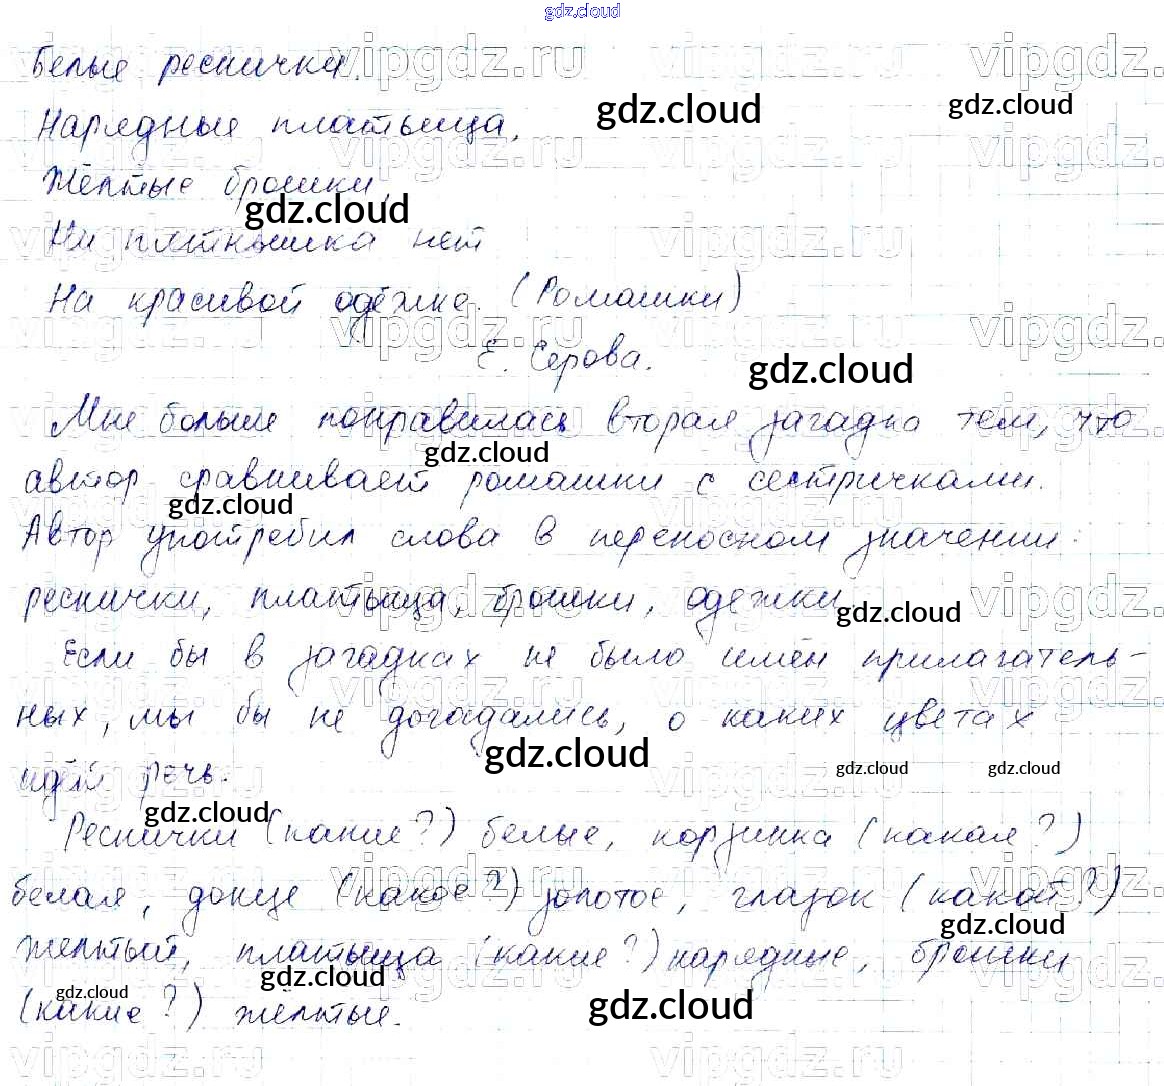 gdz.cloud
Белые реснички.
Нарядные платьица,
Жёлтые брошки,
Ни пятнышка нет
На красивой одёжке. (Ромашки)
Е. Серова.
Мне больше понравилась вторая загадка тем, что
автор сравнивает ромашки с сестричками.
Автор употребил слова в переносном значении:
реснички, платьица, брошки, одежки.
Если бы в загадках не было имён прилагатель-
ных, мы бы не догадались, о каких цветах
идёт речь.
Реснички (какие?) белые, корзинка (какая?)
белая, донце (какое?) золотое, глазок (какой?)
желтый, платьица (какие?) нарядные, брошки
(какие?) желтые.